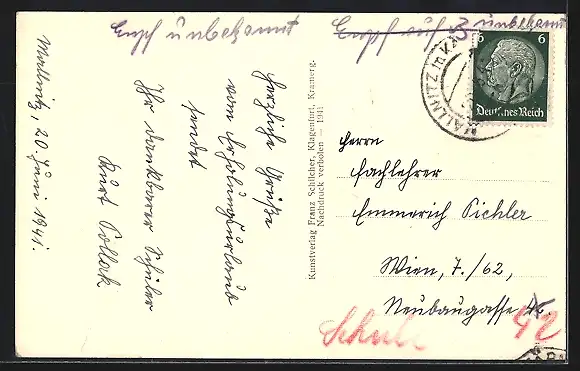 Empf unbekannt
Empf auf 3 unbekannt
Mallnitz, 20. Juni 1941.
Herzliche Grüße
vom Erholungsurlaub
sendet
Ihr dankbarer Schüler
Kurt Pollak
Kunstverlag Franz Schilcher, Klagenfurt, Kramerg.
Nachdruck verboten — 1941
MALLNITZ
6 6
Deutsches Reich
Herrn
Fachlehrer
Emmerich Pichler
Wien, 7./62,
Neubaugasse
42
Schule